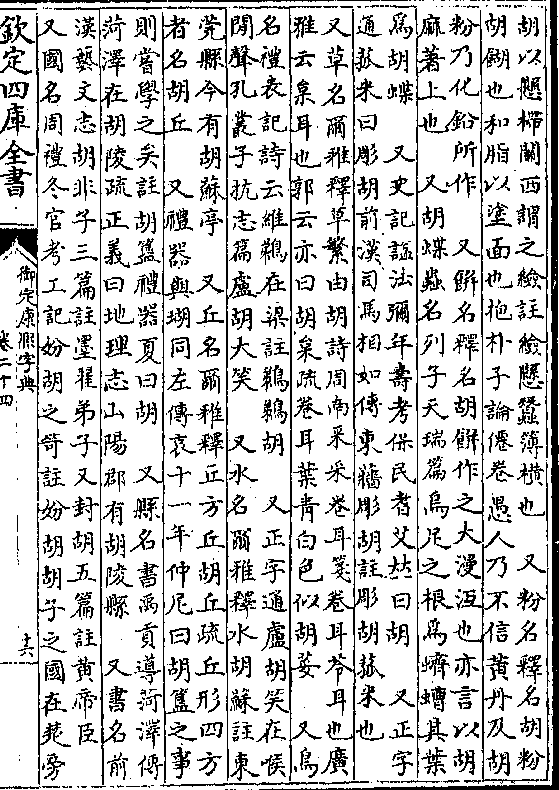 胡以懸㯕關西謂之𣝕註𣝕懸蠶薄橫也　又粉名釋名胡粉
胡餬也和脂以塗面也抱朴子論僊卷愚人乃不信黃丹及胡
粉乃化鉛所作　又餅名釋名胡餅作之大漫沍也亦言以胡
麻著上也　又胡蝶蟲名列子天瑞篇烏足之根爲蠐螬其葉
爲胡蝶　又史記諡法彌年壽考保民耆艾𠀤曰胡　又正字
通菰米曰彫胡前漢司馬相如傳東蘠彫胡註彫胡菰米也
又草名爾雅釋草繁由胡詩周南采采卷耳箋卷耳苓耳也廣
雅云枲耳也郭云亦曰胡枲疏卷耳葉青白色似胡荽　又鳥
名禮表記詩云維鵜在梁註鵜鵜胡　又正字通盧胡笑在喉
閒聲孔叢子抗志篇盧胡大笑　又水名爾雅釋水胡蘇註東
莞縣今有胡蘇亭　又丘名爾雅釋丘方丘胡丘疏丘形四方
者名胡丘　又禮器與瑚同左傳哀十一年仲尼曰胡簋之事
則嘗學之矣註胡簋禮器夏曰胡　又縣名書禹貢導菏澤傳
菏澤在胡陵疏正義曰地理志山陽郡有胡陵縣　又書名前
漢藝文志胡非子三篇註墨翟弟子又封胡五篇註黃帝臣
又國名周禮冬官考工記妢胡之笴註妢胡胡子之國在楚旁
欽定四庫全書
御定康熙字典
卷二十四
十六